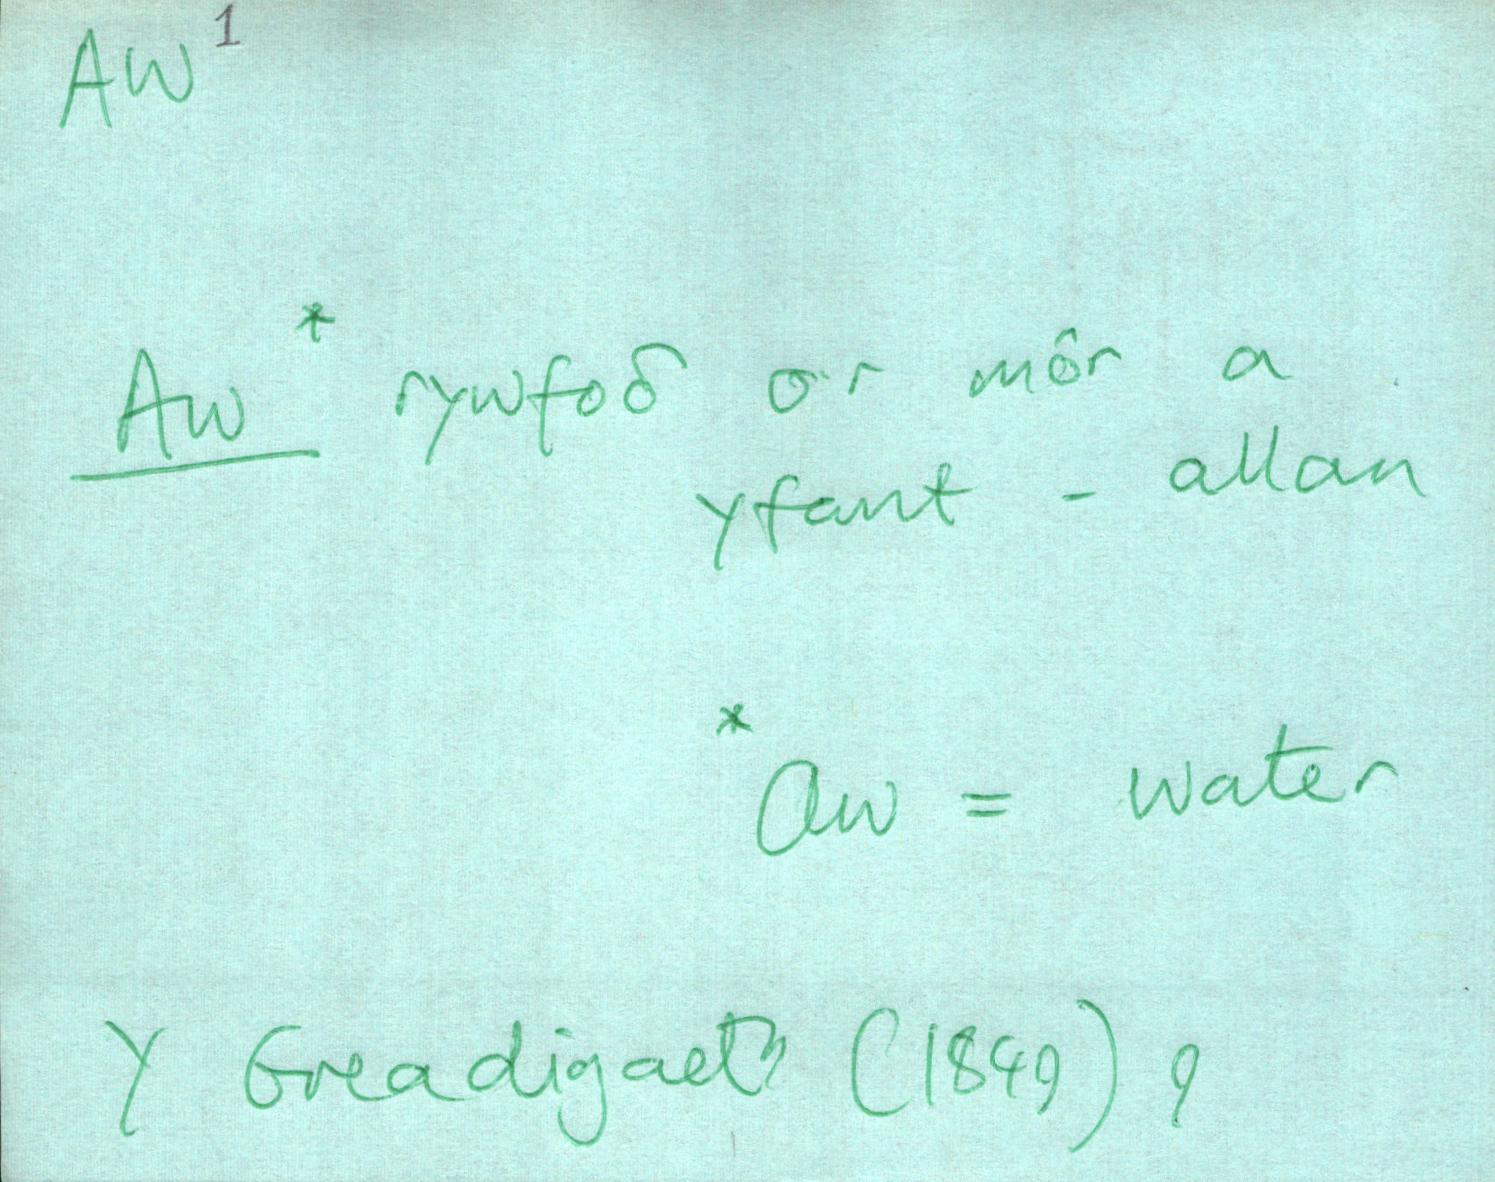 AW¹
Aw* rywfoδ o'r môr a
yfant - allan
*Aw = water
Y Greadigaeth (1849) 9